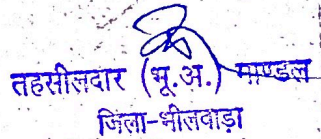 तहसीलदार (भू.अ.) माण्डल
जिला-भीलवाड़ा